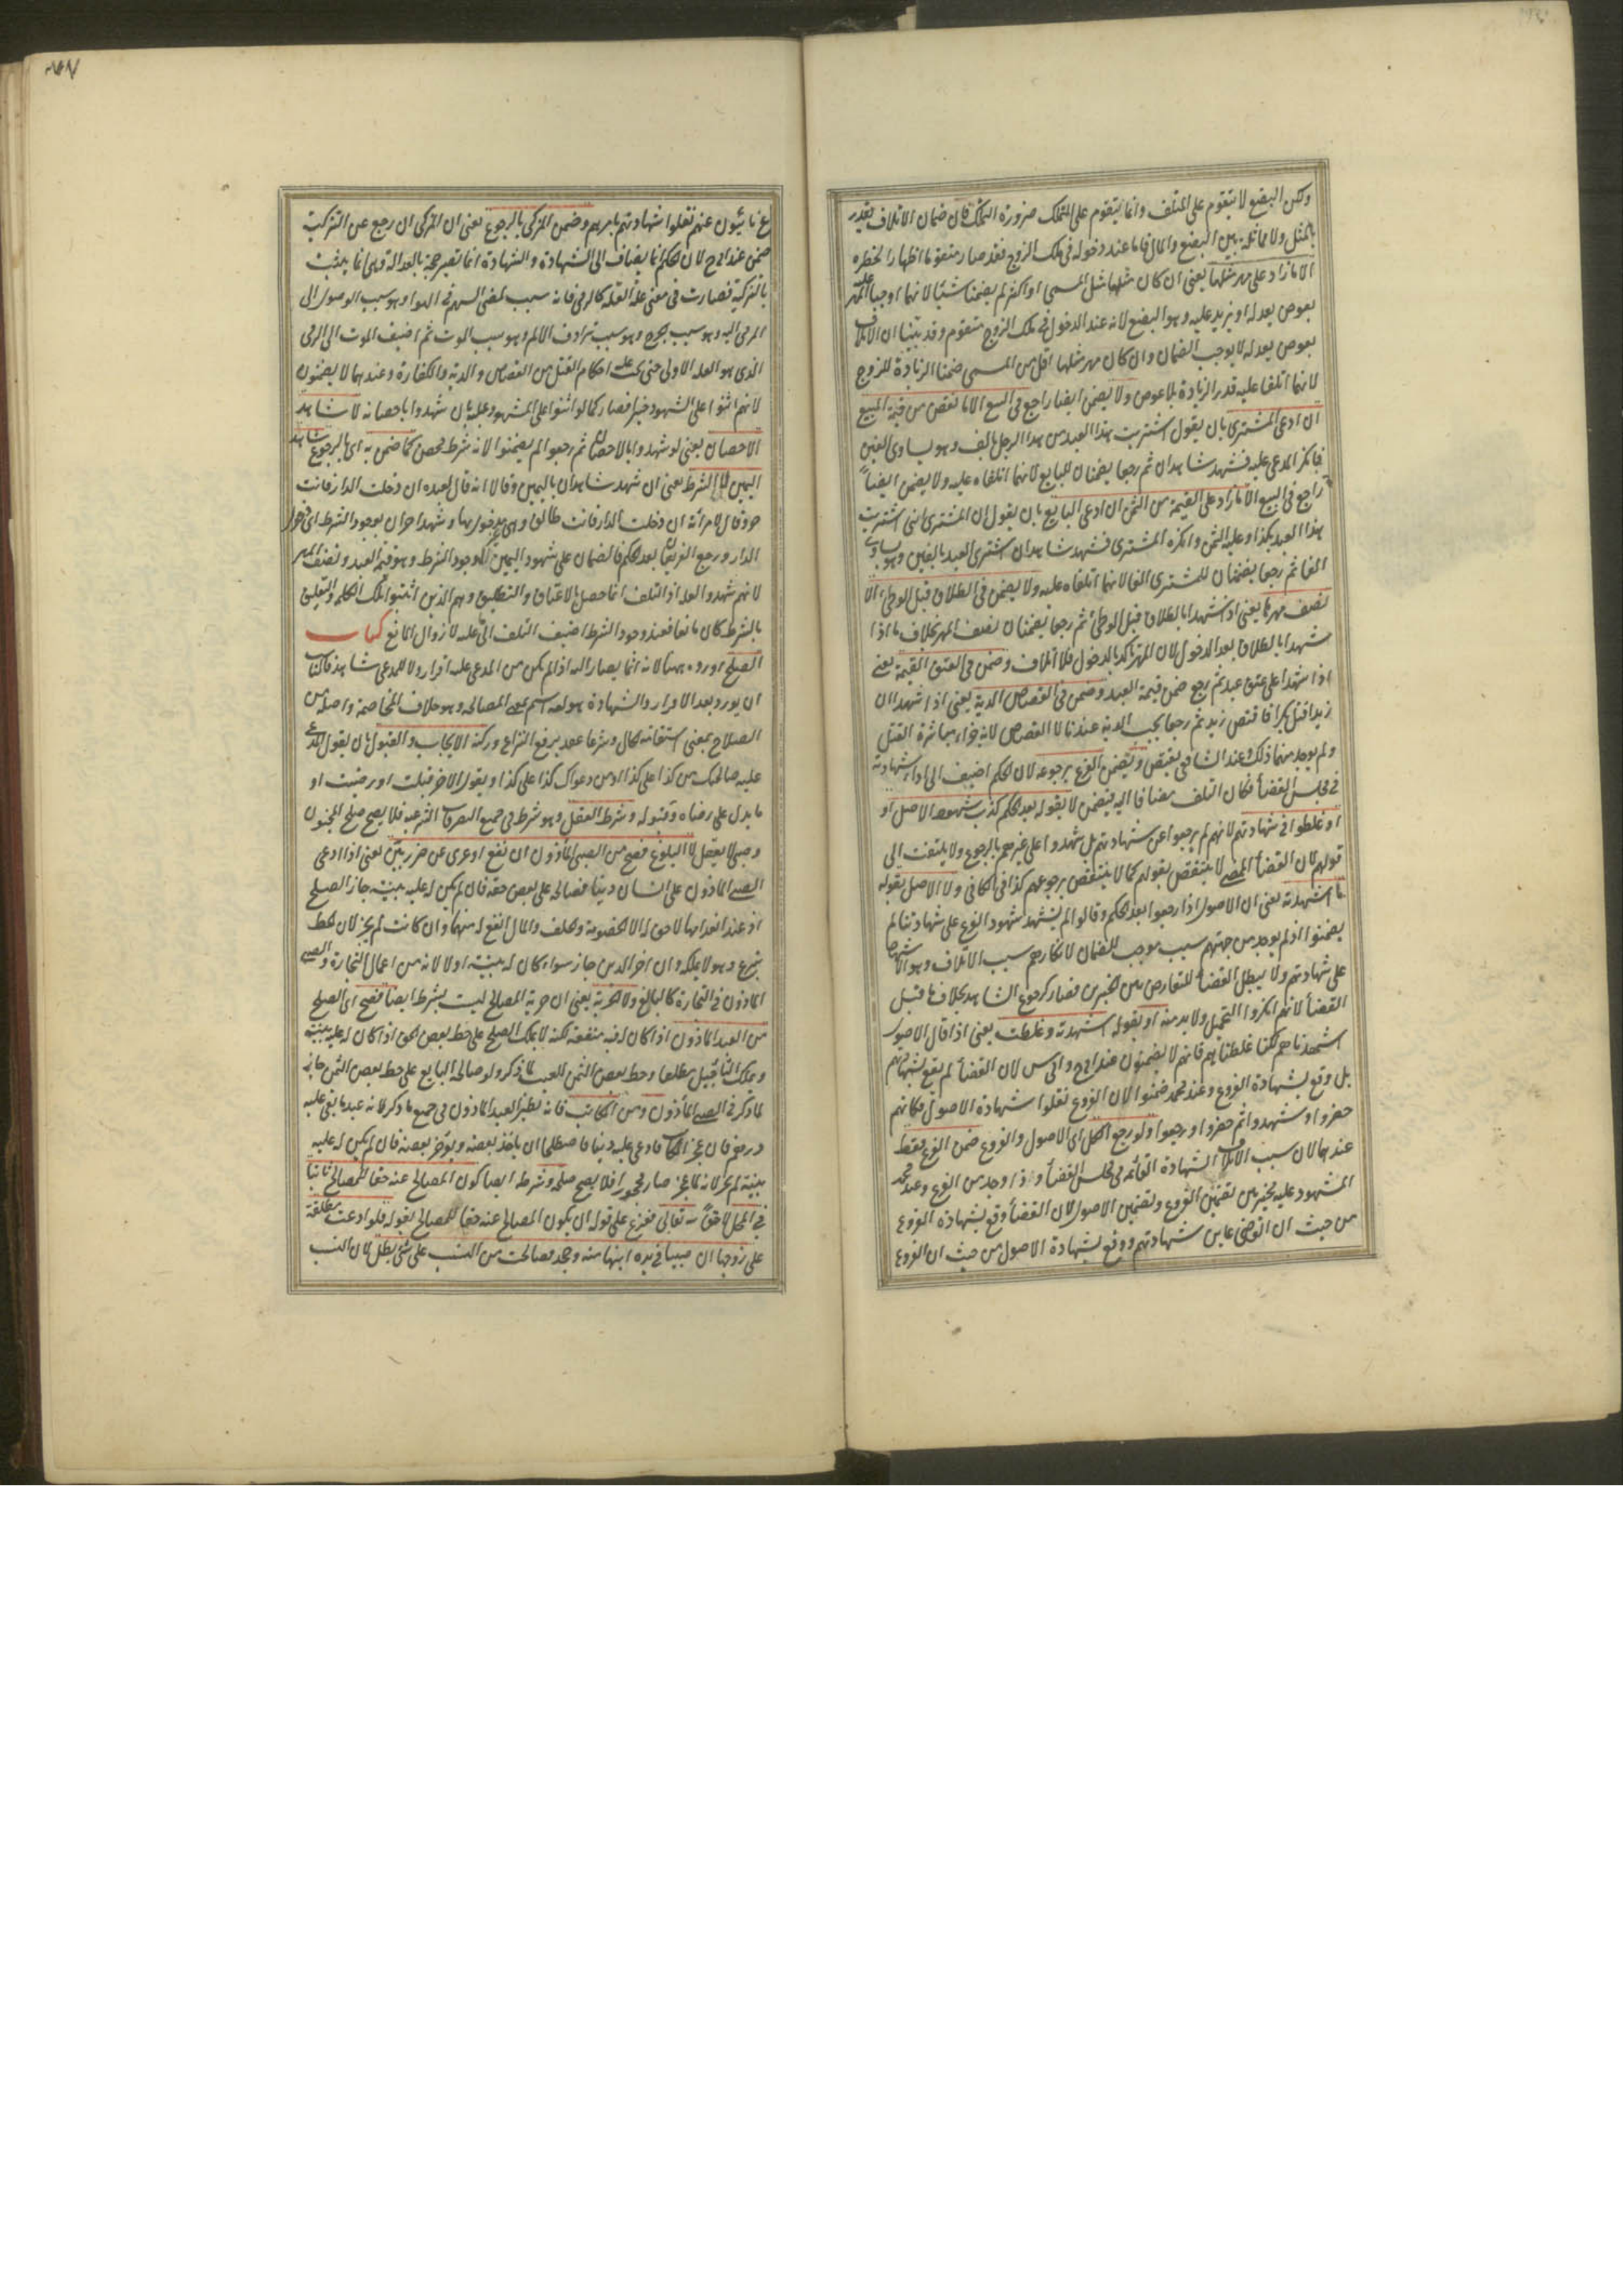 ولكن البضع لا يتقوم على المتلف وانما يتقوم على المتملك ضرورة التملك فان ضمان الاتلاف يقدر
بالمثل ولا مماثلة بين البضع والمال فاما عند دخوله في ملك الزوج فقد صار متقوما اظهارا لخطره
الا ما زاد على مهر مثلها يعنى ان كان مثلها مثل المسمى او اكثر لم يضمنا شيئا لانهما اوجبا المهر عليه
بعوض يعدله او يزيد عليه وهو البضع لانه عند الدخول في ملك الزوج متقوم وقد بينا ان الاتلاف
بعوض يعدله لا يوجب الضمان وان كان مهر مثلها اقل من المسمى ضمنا الزيادة للزوج
لانهما اتلفا عليه قدر الزيادة بلا عوض ولا يضمن ايضا راجع في البيع الا ما نقص من قيمة المبيع
ان ادعى المشترى بان يقول اشتريت هذا العبد من هذا الرجل بالف وهو يساوى الفين
فانكر المدعى عليه فشهد شاهدان ثم رجعا يضمنان للبايع لانهما اتلفاه عليه ولا يضمن ايضاً
راجع في البيع الا ما زاد على القيمة من الثمن ان ادعى البايع بان يقول ان المشترى انى اشتريت
هذا العبد بكذا وعليه الثمن وانكره المشترى فشهد شاهدان اشترى العبد بالفين وهو يساوى
الفا ثم رجعا يضمنان للمشترى الفا لانهما اتلفاه عليه ولا يضمن في الطلاق قبل الوطئ الا
نصف مهرها يعنى اذا شهدا بالطلاق قبل الوطئ ثم رجعا يضمنان نصف المهر بخلاف ما اذا
شهدا بالطلاق بعد الدخول لان المهر تأكد بالدخول فلا اتلاف وضمن في العتق القيمة يعنى
اذا شهدا على عتق عبد ثم رجع ضمن قيمة العبد وضمن في القصاص الدية يعنى اذا شهدا ان
زيدا قتل بكرا فاقتص زيد ثم رجعا يجب الدية عندنا لا القصاص لانه جزاء مباشرة القتل
ولم يوجد منهما ذلك وعند الشافعى يقتص ويضمن الفرع برجوعه لان الحكم اضيف الى اداء شهادته
في مجلس القضأ فكان التلف مضافا اليه فيضمن لا بقوله بعد الحكم كذب شهود الاصل او
او غلطوا في شهادتهم لانهم لم يرجعوا عن شهادتهم بل شهدوا على غيرهم بالرجوع ولا يلتفت الى
قولهم لان القضأ الممضى لا ينتقض بقولهم كما لا ينتقض برجوعهم كذا في الكافى ولا الاصل بقوله
ما اشهدته يعنى ان الاصول اذا رجعوا بعد الحكم وقالوا لم يشهد شهود الفرع على شهادتنا لم
يضمنوا اذ لم يوجد من جهتهم سبب موجب للضمان لانكارهم سبب الاتلاف وهو الاشهاد
على شهادتهم ولا يبطل القضأ للتعارض بين الخبرين فصار كرجوع الشاهد بخلاف ما قبل
القضأ لانهم انكروا التحميل ولا بد منه او بقوله اشهدته وغلطت يعنى اذا قال الاصول
اشهدناهم لكنا غلطنا فانهم لا يضمنون عند ابى ح وابى س لان القضأ لم يقع بشهادتهم
بل وقع بشهادة الفروع وعند محمد ضمنوا لان الفروع نقلوا شهادة الاصول فكانهم
حضروا وشهدوا ثم حضروا ورجعوا ولو رجع الكل اى الاصول والفروع ضمن الفرع فقط
عندهما لان سبب الاتلاف الشهادة القائمة في مجلس القضأ واذا وجد من الفرع وعند محمد
المشهود عليه مخير بين تضمين الفروع وتضمين الاصول لان القضأ وقع بشهادة الفروع
من حيث ان القاضى عاين شهادتهم ووقع بشهادة الاصول من حيث ان الفروع
نائبون عنهم نقلوا شهادتهم بامرهم وضمن المزكى بالرجوع يعنى ان المزكى ان رجع عن التزكية
ضمن عند ابى ح لان الحكم انما يضاف الى الشهادة والشهادة انما تصير حجة بالعدالة وهى انما يثبت
بالتزكية فصارت في معنى علة العلة كالرمى فانه سبب لمضى السهم في الهوا وهو سبب الوصول الى
المرمى اليه وهو سبب الجرح وهو سبب ترادف الالم وهو سبب الموت ثم اضيف الموت الى الرمى
الذى هو العلة الاولى حتى تجب عليه احكام القتل من القصاص والدية والكفارة وعندهما لا يضمنون
لانهم اثنوا على الشهود خيرا فصار كما لو اثنوا على المشهود عليه بان شهدوا باحصانه لا شاهد
الاحصان يعنى لو شهدوا بالاحصان ثم رجعوا لم يضمنوا لانه شرط محض كما ضمن به اى بالرجوع شاهد
اليمين لا الشرط يعنى ان شهد شاهدان باليمين وقالا انه قال لعبده ان دخلت الدار فانت
حر وقال لامرأته ان دخلت الدار فانت طالق وهى بدخولها وشهد اخران بوجود الشرط اى دخول
الدار ورجع الفريقان بعد الحكم فالضمان على شهود اليمين لا وجود الشرط وهو قيمة العبد ونصف المهر
لانهم شهدوا العلة اذ التلف انما حصل بالاعتاق والتطليق وهم الذين اثبتوا تلك الكلمة والتعليق
بالشرط كان مانعا فعند وجود الشرط اضيف التلف الى علته لا زوال المانع كتاب
الصلح اورده هنا لانه انما يصار اليه اذا لم يكن من المدعى عليه اقرار ولا للمدعى شاهد فالمناسب
ان يورد بعد الاقرار والشهادة هو لغة اسم بمعنى المصالحة وهو خلاف المخاصمة واصله من
الصلاح بمعنى استقامة الحال وشرعا عقد يرفع النزاع وركنه الايجاب والقبول بان يقول المدعى
عليه صالحتك من كذا على كذا او من دعواك كذا على كذا ويقول الاخر قبلت او رضيت او
ما يدل على رضاه وقبوله وشرطه العقل وهو شرط في جميع التصرفات الشرعية فلا يصح صلح المجنون
وصبى لا يعقل لا البلوغ فصح من الصبى المأذون ان نفع او عرى عن ضرر بين يعنى اذا ادعى
الصبى المأذون على انسان دينا فصالحه على بعض حقه فان لم يكن له عليه بينة جاز الصلح
اذ عند انعدامها لا حق له الا الخصومة والحلف والمال انفع له منهما وان كانت لم يجز لان الحط
تبرع وهو لا يملكه وان اخر الدين جاز سواء كان له بينة اولا لانه من اعمال التجارة والصبى
المأذون في التجارة كالبالغ ولا الحرية يعنى ان حرية المصالح ليست بشرط ايضا فصح اى الصلح
من العبد المأذون اذا كان له فيه منفعة لكنه لا يملك الصلح على حط بعض الحق اذا كان له عليه بينة
ويملك التأجيل مطلقا وحط بعض الثمن للعيب لما ذكر ولو صالحه البايع على حط بعض الثمن جاز
لما ذكر في الصبى المأذون ومن المكاتب فانه نظير العبد المأذون في جميع ما ذكر لانه عبد ما بقى عليه
درهم فان عجز المكاتب فادعى عليه دينا فاصطلحا ان ياخذ بعضه ويؤخر بعضه فان لم يكن له عليه
بينة لم يجز لانه لما عجز صار محجورا فلا يصح صلحه وشرطه ايضا كون المصالح عنه حقا للمصالح ثابتا
في المحل لا حقاً لله تعالى ففرع على قوله ان يكون المصالح عنه حقا للمصالح بقوله فلو ادعت مطلقة
على زوجها ان صبيا في يده ابنها منه وجحد فصالحت من النسب على شئ بطل لان النسب